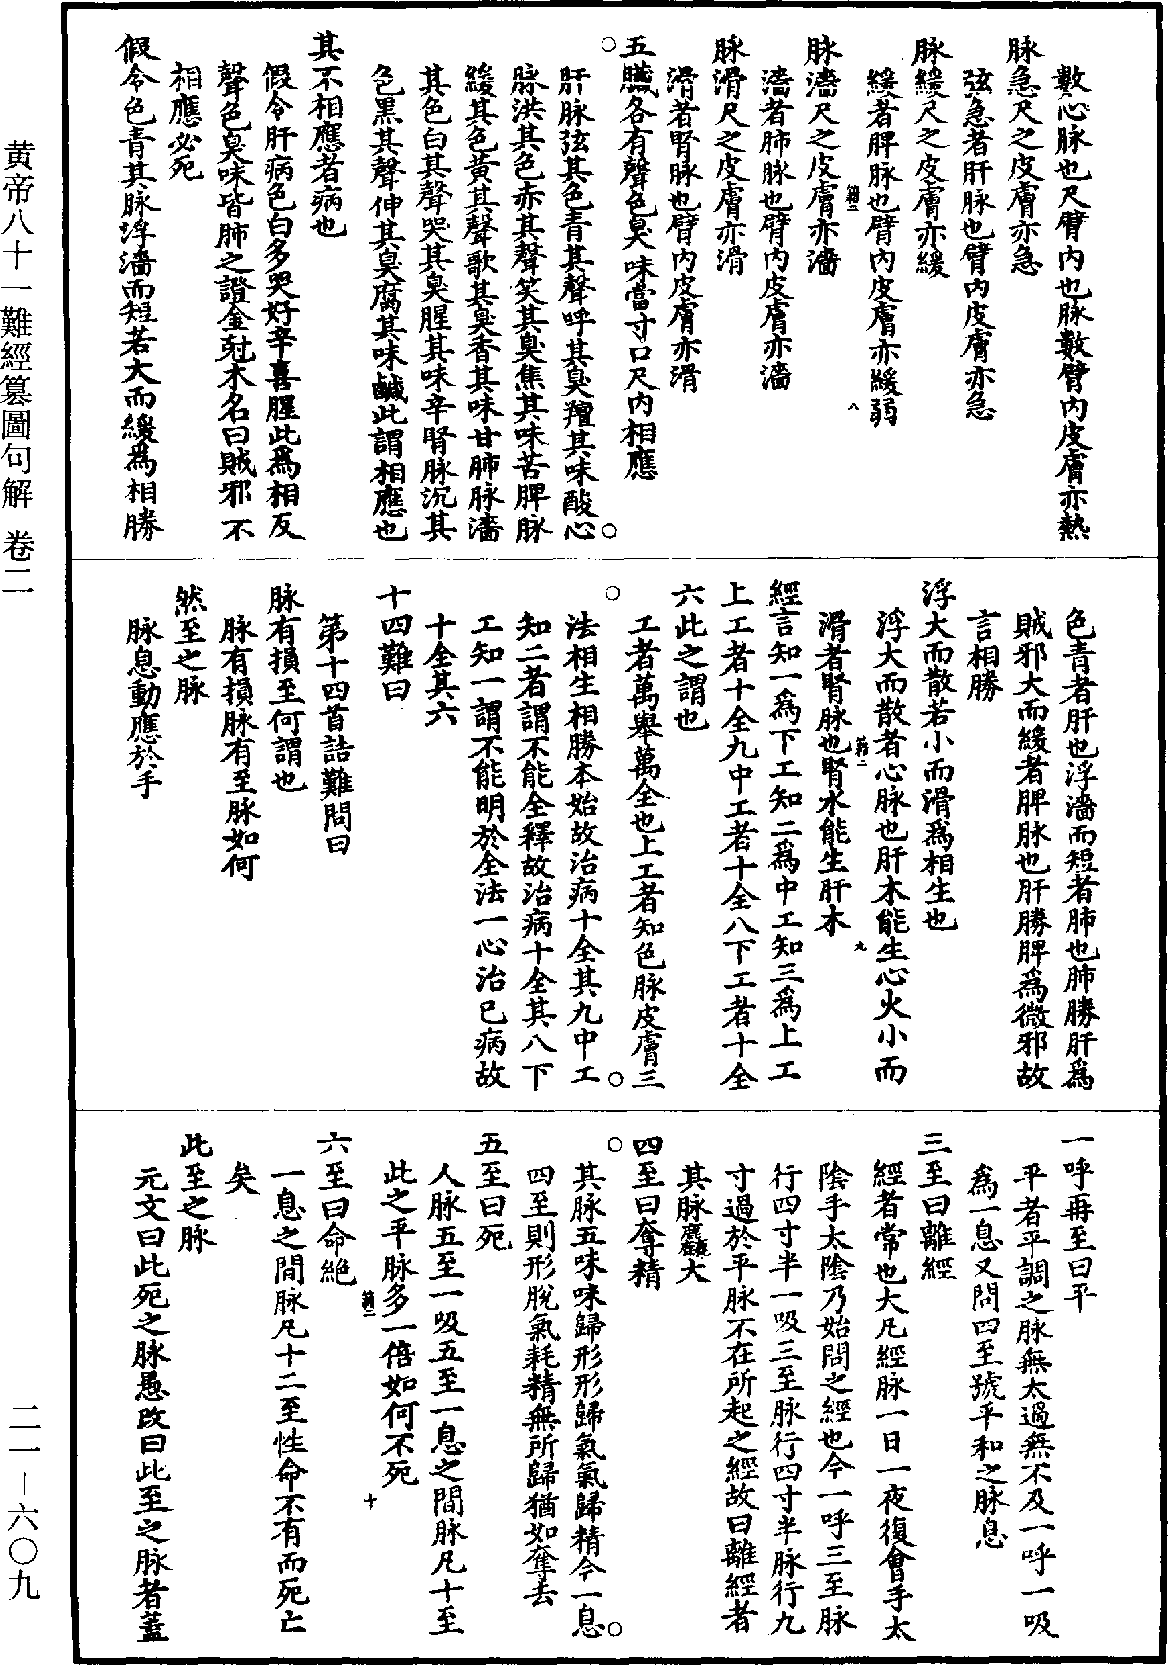 數心脉也尺臂內也脉數臂內皮膚亦熱
脉急尺之皮膚亦急
弦急者肝脉也臂內皮膚亦急
脉緩尺之皮膚亦緩
緩者脾脉也臂內皮膚亦緩弱
八
脉濇尺之皮膚亦濇
濇者肺脉也臂內皮膚亦濇
脉滑尺之皮膚亦滑
滑者腎脉也臂內皮膚亦滑
五臟各有聲色臭味當寸口尺內相應
肝脉弦其色青其聲呼其臭羶其味酸心
脉洪其色赤其聲笑其臭焦其味苦脾脉
緩其色黃其聲歌其臭香其味甘肺脉濇
其色白其聲哭其臭腥其味辛腎脉沉其
色黑其聲伸其臭腐其味鹹此謂相應也
其不相應者病也
假令肝病色白多哭好辛喜腥此為相反
聲色臭味皆肺之證金尅木名曰賊邪不
相應必死
假令色青其脉浮濇而短若大而緩為相勝
色青者肝也浮濇而短者肺也肺勝肝為
賊邪大而緩者脾脉也肝勝脾為微邪故
言相勝
浮大而散若小而滑為相生也
浮大而散者心脉也肝木能生心火小而
九
滑者腎脉也腎水能生肝木
經言知一為下工知二為中工知三為上工
上工者十全九中工者十全八下工者十全
六此之謂也
工者萬舉萬全也上工者知色脉皮膚三
法相生相勝本始故治病十全其九中工
知二者謂不能全釋故治病十全其八下
工知一謂不能明於全法一心治已病故
十全其六
十四難曰
第十四首詰難問曰
脉有損至何謂也
脉有損脉有至脉如何
然至之脉
脉息動應於手
一呼再至曰平
平者平調之脉無太過無不及一呼一吸
為一息又問四至號平和之脉息
三至曰離經
經者常也大凡經脉一日一夜復會手太
陰手太陰乃始問之經也今一呼三至脉
行四寸半一吸三至脉行四寸半脉行九
寸過於平脉不在所起之經故曰離經者
其脉麤大
四至曰奪精
其脉五味味歸形形歸氣氣歸精今一息
四至則形脫氣耗精無所歸猶如奪去
五至曰死
人脉五至一吸五至一息之間脉凡十至
此之平脉多一倍如何不死
十
六至曰命絕
一息之間脉凡十二至性命不有而死亡
矣
此至之脉
元文曰此死之脉愚改曰此至之脉者蓋
黃帝八十一難經纂圖句解 卷二
二一—六〇九